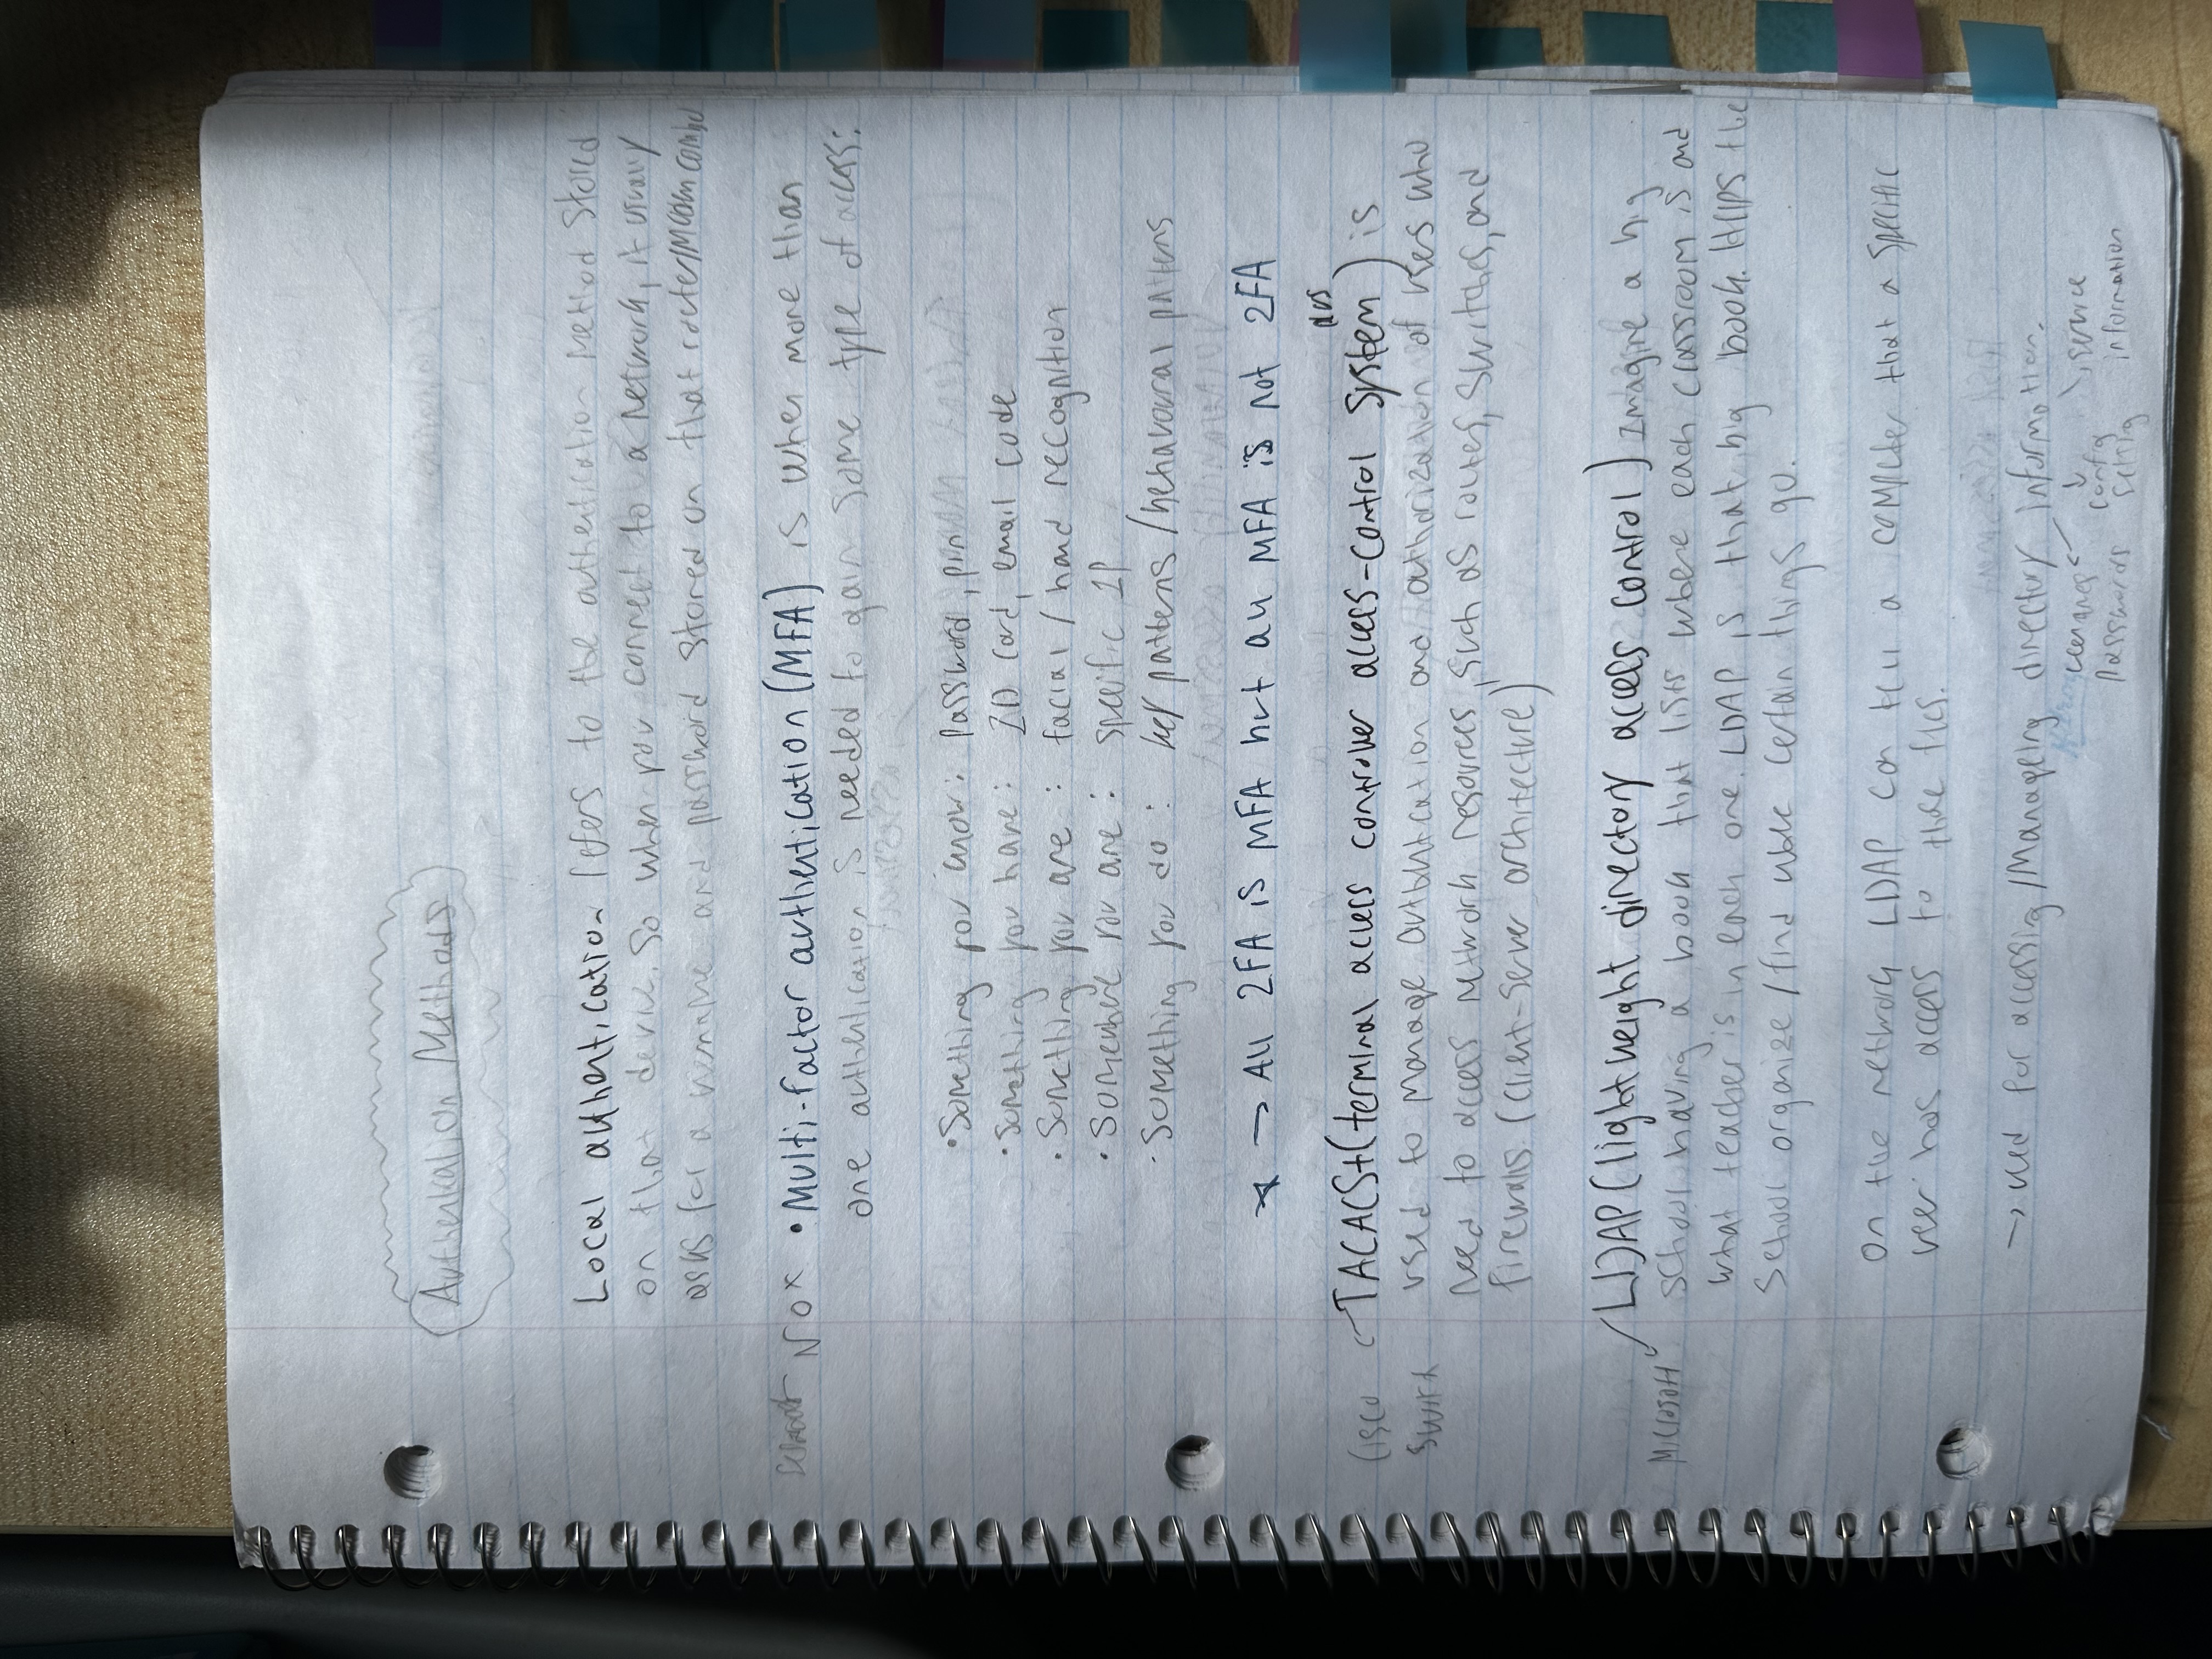 Authentication Methods
Local authentication refers to the authentication method stored
on that device. So when you connect to a network, it usually
asks for a username and password stored on that router/modem combo
• Multi-factor authentication (MFA) is when more than
one authentication is needed to gain some type of access:
• Something you know: password, pin
• Something you have: ID card, email code
• Something you are: facial / hand recognition
• Somewhere you are: specific IP
• Something you do: key patterns / behavoural patterns
→ All 2FA is MFA but all MFA is not 2FA
plus
Cisco TACACS+ (terminal access controller access-control system) is
switch used to manage authentication and authorization of users who
need to access network resources, such as routers, switches, and
firewalls. (client-server architecture)
LDAP (lightweight directory access control) Imagine a big
Microsoft school having a book that lists where each classroom is and
what teacher is in each one. LDAP is that big book. Helps the
school organize / find where certain things go.
On the network LDAP can tell a computer that a specific
user has access to those files.
→ used for accessing / Manageing directory information.
usernames config service
passwords setting information